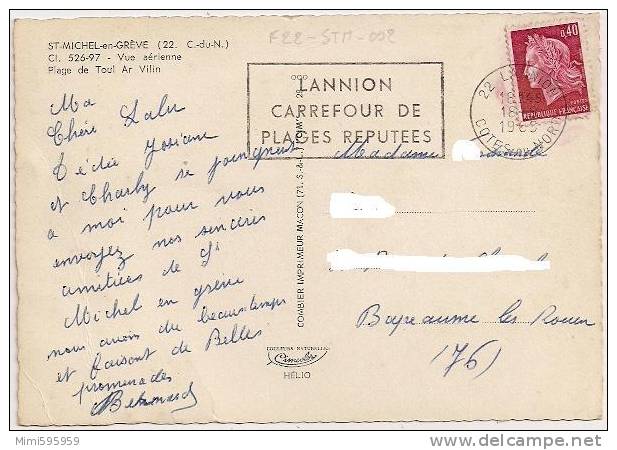 F22-STM-002
ST-MICHEL-en-GRÈVE (22. C.-du-N.)
CI. 526-97 - Vue aérienne
Plage de Toul Ar Vilin
LANNION
CARREFOUR DE
PLAGES REPUTEES
0,40
POSTES
REPUBLIQUE FRANÇAISE
22 LANNION
18
1969
COTES DU NORD
Ma
Chère Lalu
Josiane
et Charly se joignent
a moi pour vous
envoyez nos sincères
amitiées de St
Michel en grève
nous avons du beau temps
et faisont de Belles
promenades
Bernard
COMBIER IMPRIMEUR MACON (71, S.-&-L.)
Madame
Bapeaume les Rouen
(76)
COULEURS NATURELLES
Cimcolor
HÉLIO
Mimi595959
delcampe.net